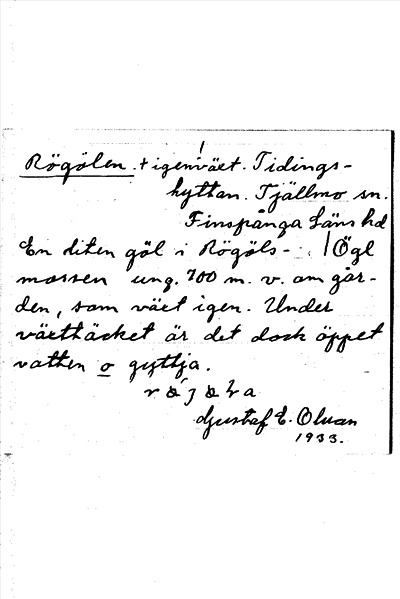 Rögölen. + igenväxt. Tidings-
hyttan. Tjällmo sn.
Finspånga Läns hd
En liten göl i Rögöls- Ögl
mossen ung. 700 m. v. om går-
den, som växt igen. Under
växttäcket är det dock öppet
vatten o gyttja.
Gustaf E. Olsson
1933.